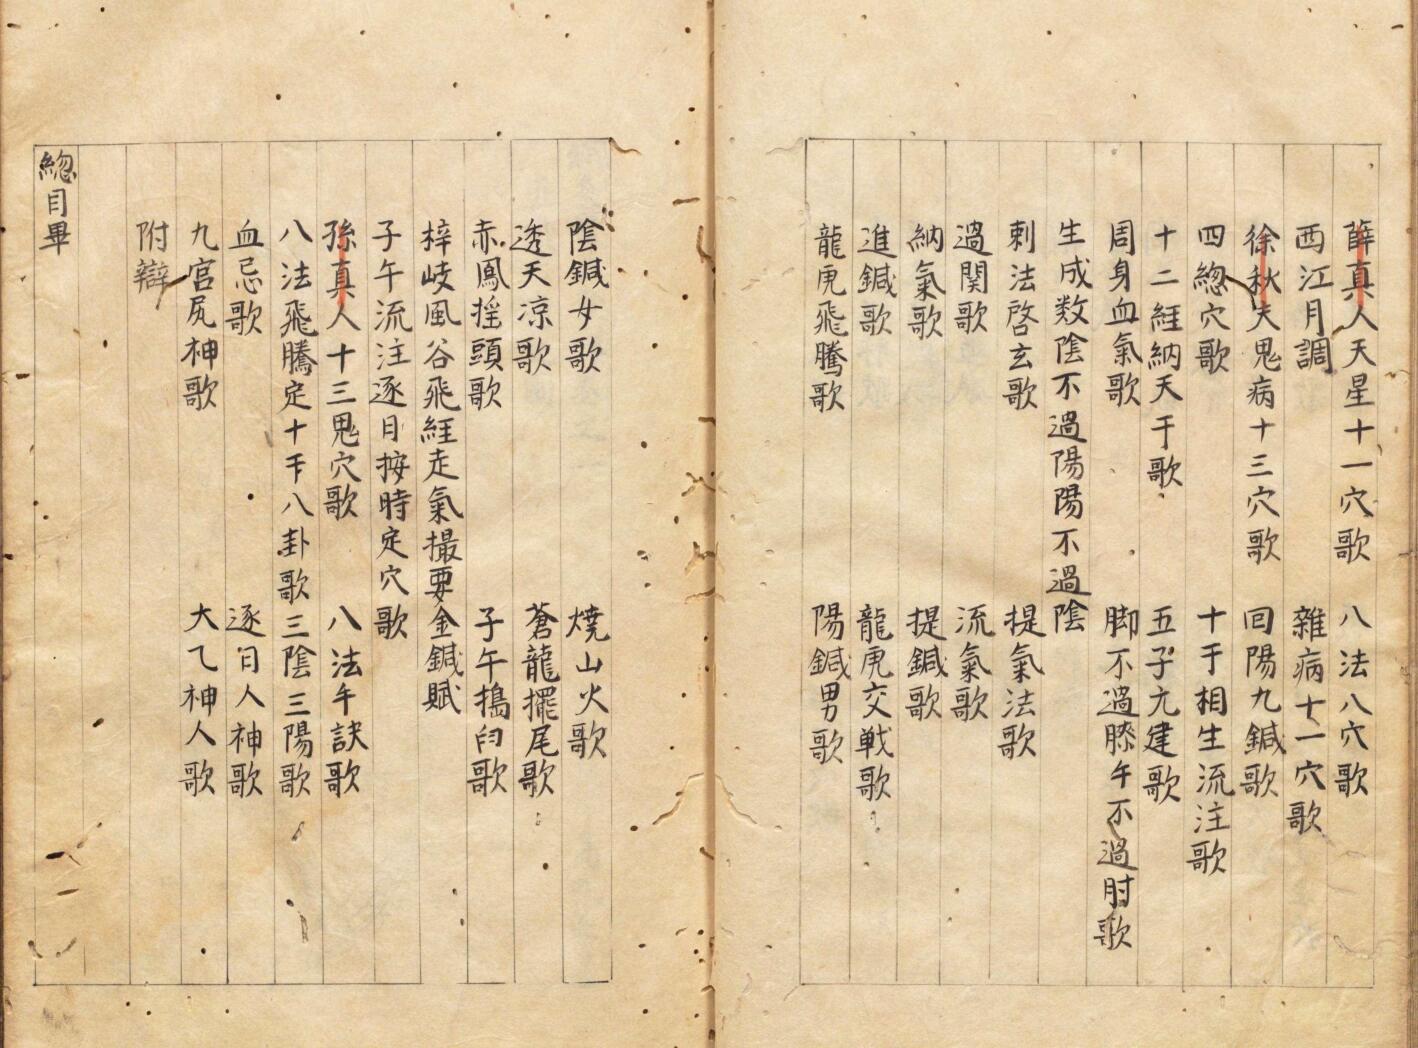 薛真人天星十一穴歌　八法八穴歌
西江月調　雜病十一穴歌
徐秋夫鬼病十三穴歌　回陽九鍼歌
四總穴歌　十干相生流注歌
十二経納天干歌　五子元建歌
周身血氣歌　脚不過膝手不過肘歌
生成数陰不過陽陽不過陰
刺法啓玄歌　提氣法歌
過関歌　流氣歌
納氣歌　提鍼歌
進鍼歌　龍虎交戦歌
龍虎飛騰歌　陽鍼男歌
陰鍼女歌　燒山火歌
透天凉歌　蒼龍擺尾歌
赤鳳摇頭歌　子午搗臼歌
梓岐風谷飛経走氣撮要金鍼賦
子午流注逐日按時定穴歌
孫真人十三鬼穴歌　八法手訣歌
八法飛騰定十干八卦歌　三陰三陽歌
血忌歌　逐日人神歌
九宮尻神歌　太乙神人歌
附辯
總目畢